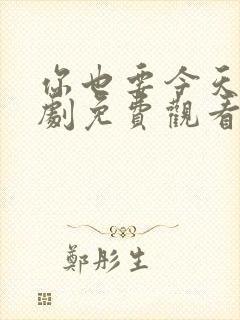 你也要今天
劇免費觀看
鄭彤生